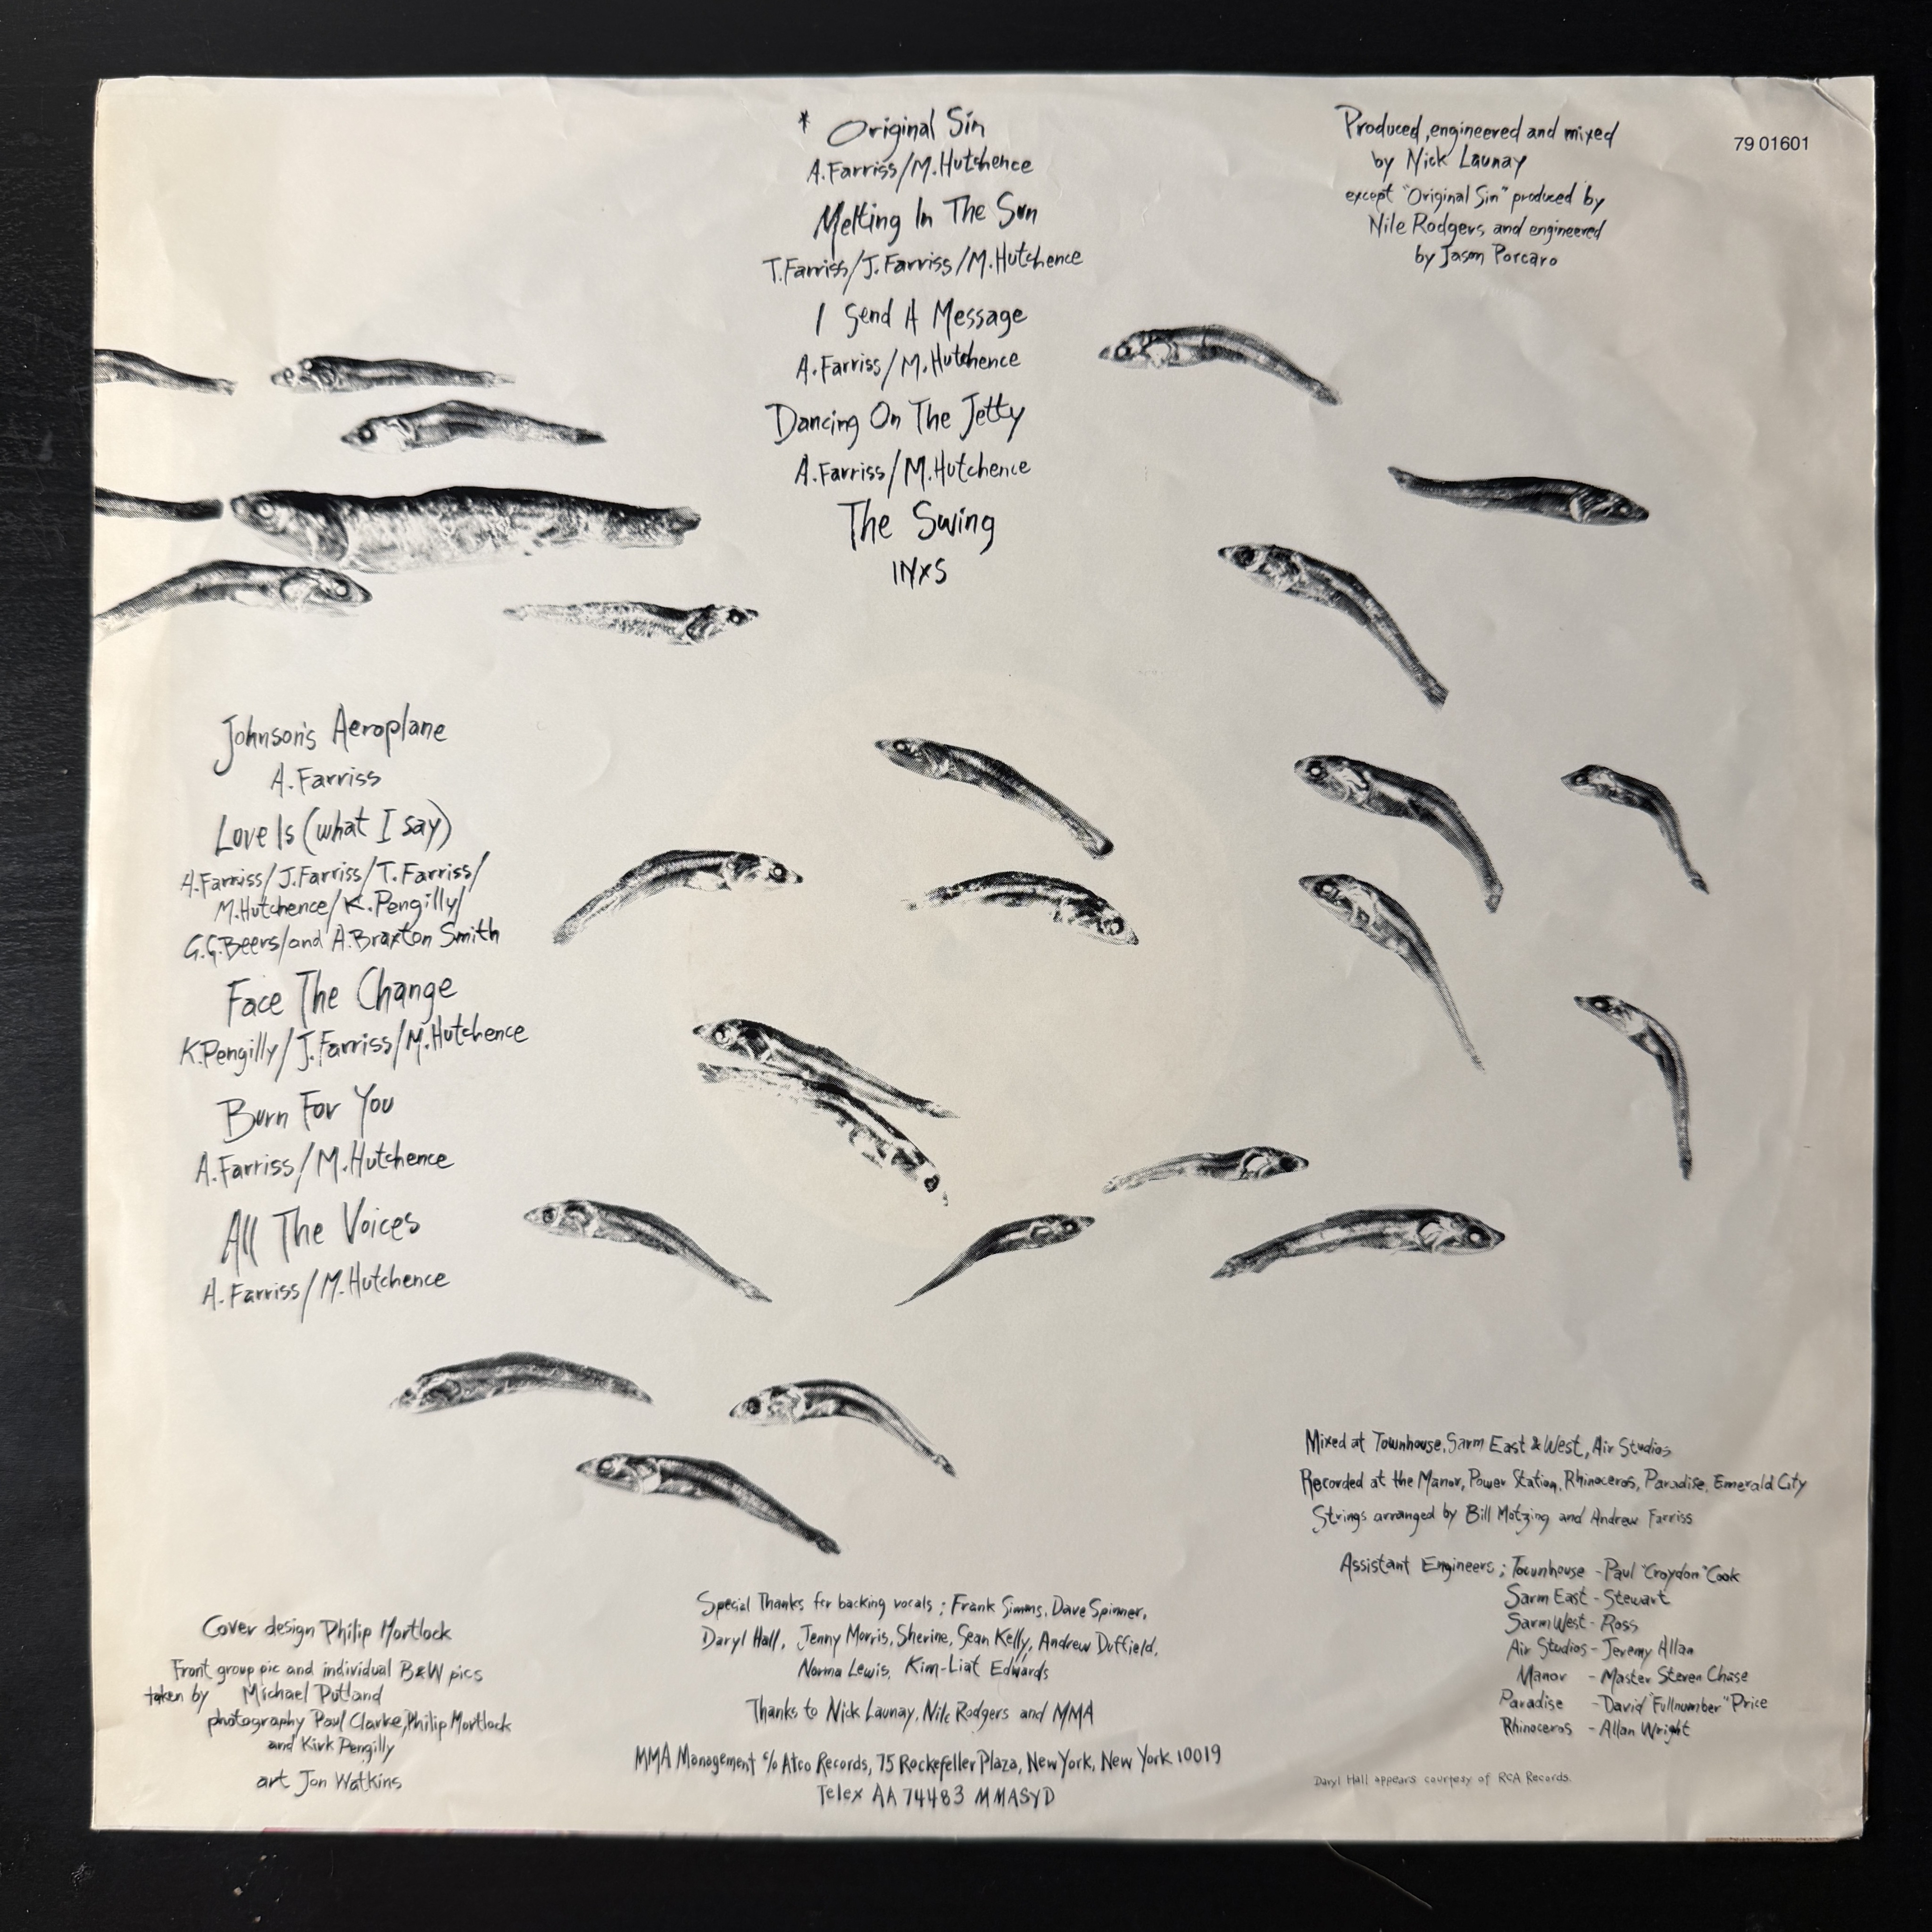 * Original Sin
A.Farriss/M.Hutchence
Melting In The Sun
T.Farriss/J.Farriss/M.Hutchence
I Send A Message
A.Farriss/M.Hutchence
Dancing On The Jetty
A.Farriss/M.Hutchence
The Swing
INXS
Produced, engineered and mixed
by Nick Launay
except "Original Sin" produced by
Nile Rodgers and engineered
by Jason Porcaro
79 01601
Johnson's Aeroplane
A.Farriss
Love Is (what I say)
A.Farriss/J.Farriss/T.Farriss/
M.Hutchence/K.Pengilly/
G.G.Beers/and A.Braxton Smith
Face The Change
K.Pengilly/J.Farriss/M.Hutchence
Burn For You
A.Farriss/M.Hutchence
All The Voices
A.Farriss/M.Hutchence
Cover design Philip Mortlock
Front group pic and individual B&W pics
taken by Michael Putland
photography Paul Clarke, Philip Mortlock
and Kirk Pengilly
art Jon Watkins
Special Thanks for backing vocals; Frank Simms, Dave Spinner,
Daryl Hall, Jenny Morris, Sherine, Sean Kelly, Andrew Duffield,
Norma Lewis, Kim-Liat Edwards
Thanks to Nick Launay, Nile Rodgers and MMA
MMA Management c/o Atco Records, 75 Rockefeller Plaza, New York, New York 10019
Telex AA 74483 MMASYD
Mixed at Townhouse, Sarm East & West, Air Studios
Recorded at the Manor, Power Station, Rhinoceros, Paradise, Emerald City
Strings arranged by Bill Motzing and Andrew Farriss
Assistant Engineers; Townhouse - Paul "Croydon" Cook
Sarm East - Stewart
Sarm West - Ross
Air Studios - Jeremy Allan
Manor - Master Steven Chase
Paradise - David "Fullnumber" Price
Rhinoceros - Allan Wright
Daryl Hall appears courtesy of RCA Records.